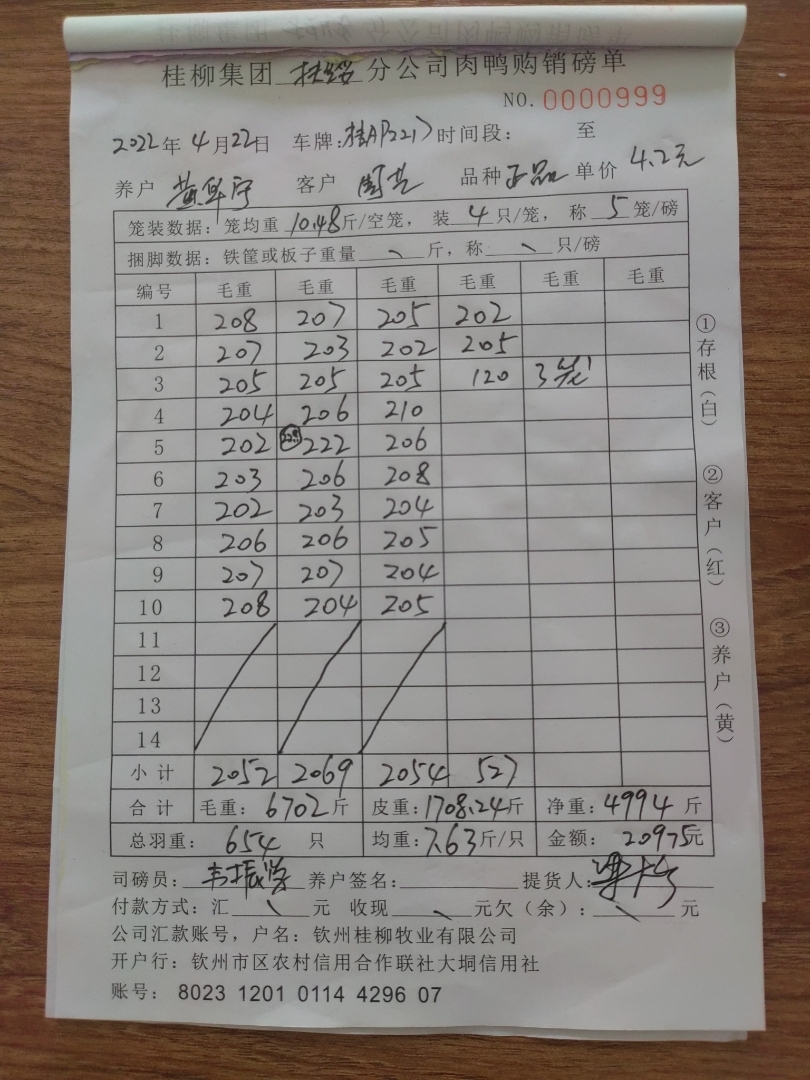 桂柳集团 扶绥 分公司肉鸭购销磅单
NO. 0000999
2022年 4月22日 车牌: 时间段: 至
养户 黄华宁 客户 品种 正品 单价 4.2元
笼装数据: 笼均重 10.48斤/空笼, 装 4 只/笼, 称 5 笼/磅
捆脚数据: 铁筐或板子重量 、 斤, 称 、 只/磅
编号 毛重 毛重 毛重 毛重 毛重 毛重
1 208 207 205 202
2 207 203 202 205
3 205 205 205 120 3笼
4 204 206 210
5 202 222 206
6 203 206 208
7 202 203 204
8 206 206 205
9 207 207 204
10 208 204 205
11
12
13
14
小计 2052 2069 2054 527
合计 毛重: 6702斤 皮重: 1708.24斤 净重: 4994 斤
总羽重: 654 只 均重: 7.63斤/只 金额: 20975元
司磅员: 韦振学 养户签名: 提货人:
付款方式: 汇 、 元 收现 、 元欠(余): 、 元
公司汇款账号, 户名: 钦州桂柳牧业有限公司
开户行: 钦州市区农村信用合作联社大垌信用社
账号: 8023 1201 0114 4296 07
①存根(白) ②客户(红) ③养户(黄)